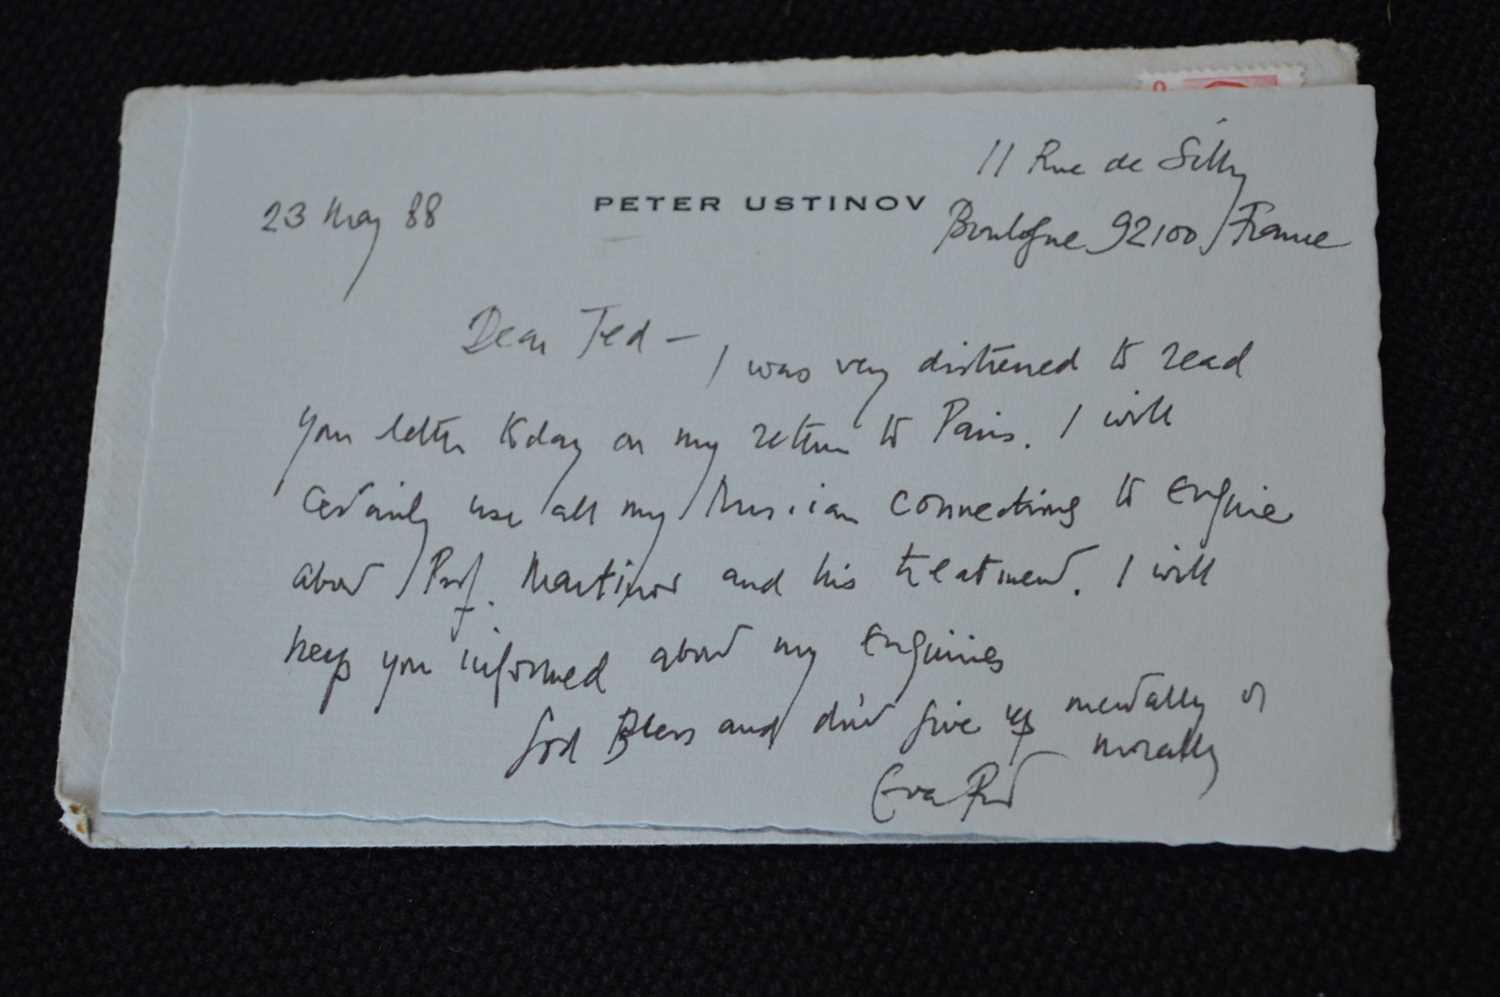 11 Rue de Silly
23 May 88
PETER USTINOV
Boulogne 92100 / France
Dear Ted – I was very distressed to read
your letter today on my return to Paris. I will
Certainly use all my Russian connections to enquire
about Prof. and his treatment. I will
keep you informed about my enquiries
God Bless and don't give up mentally or
morally